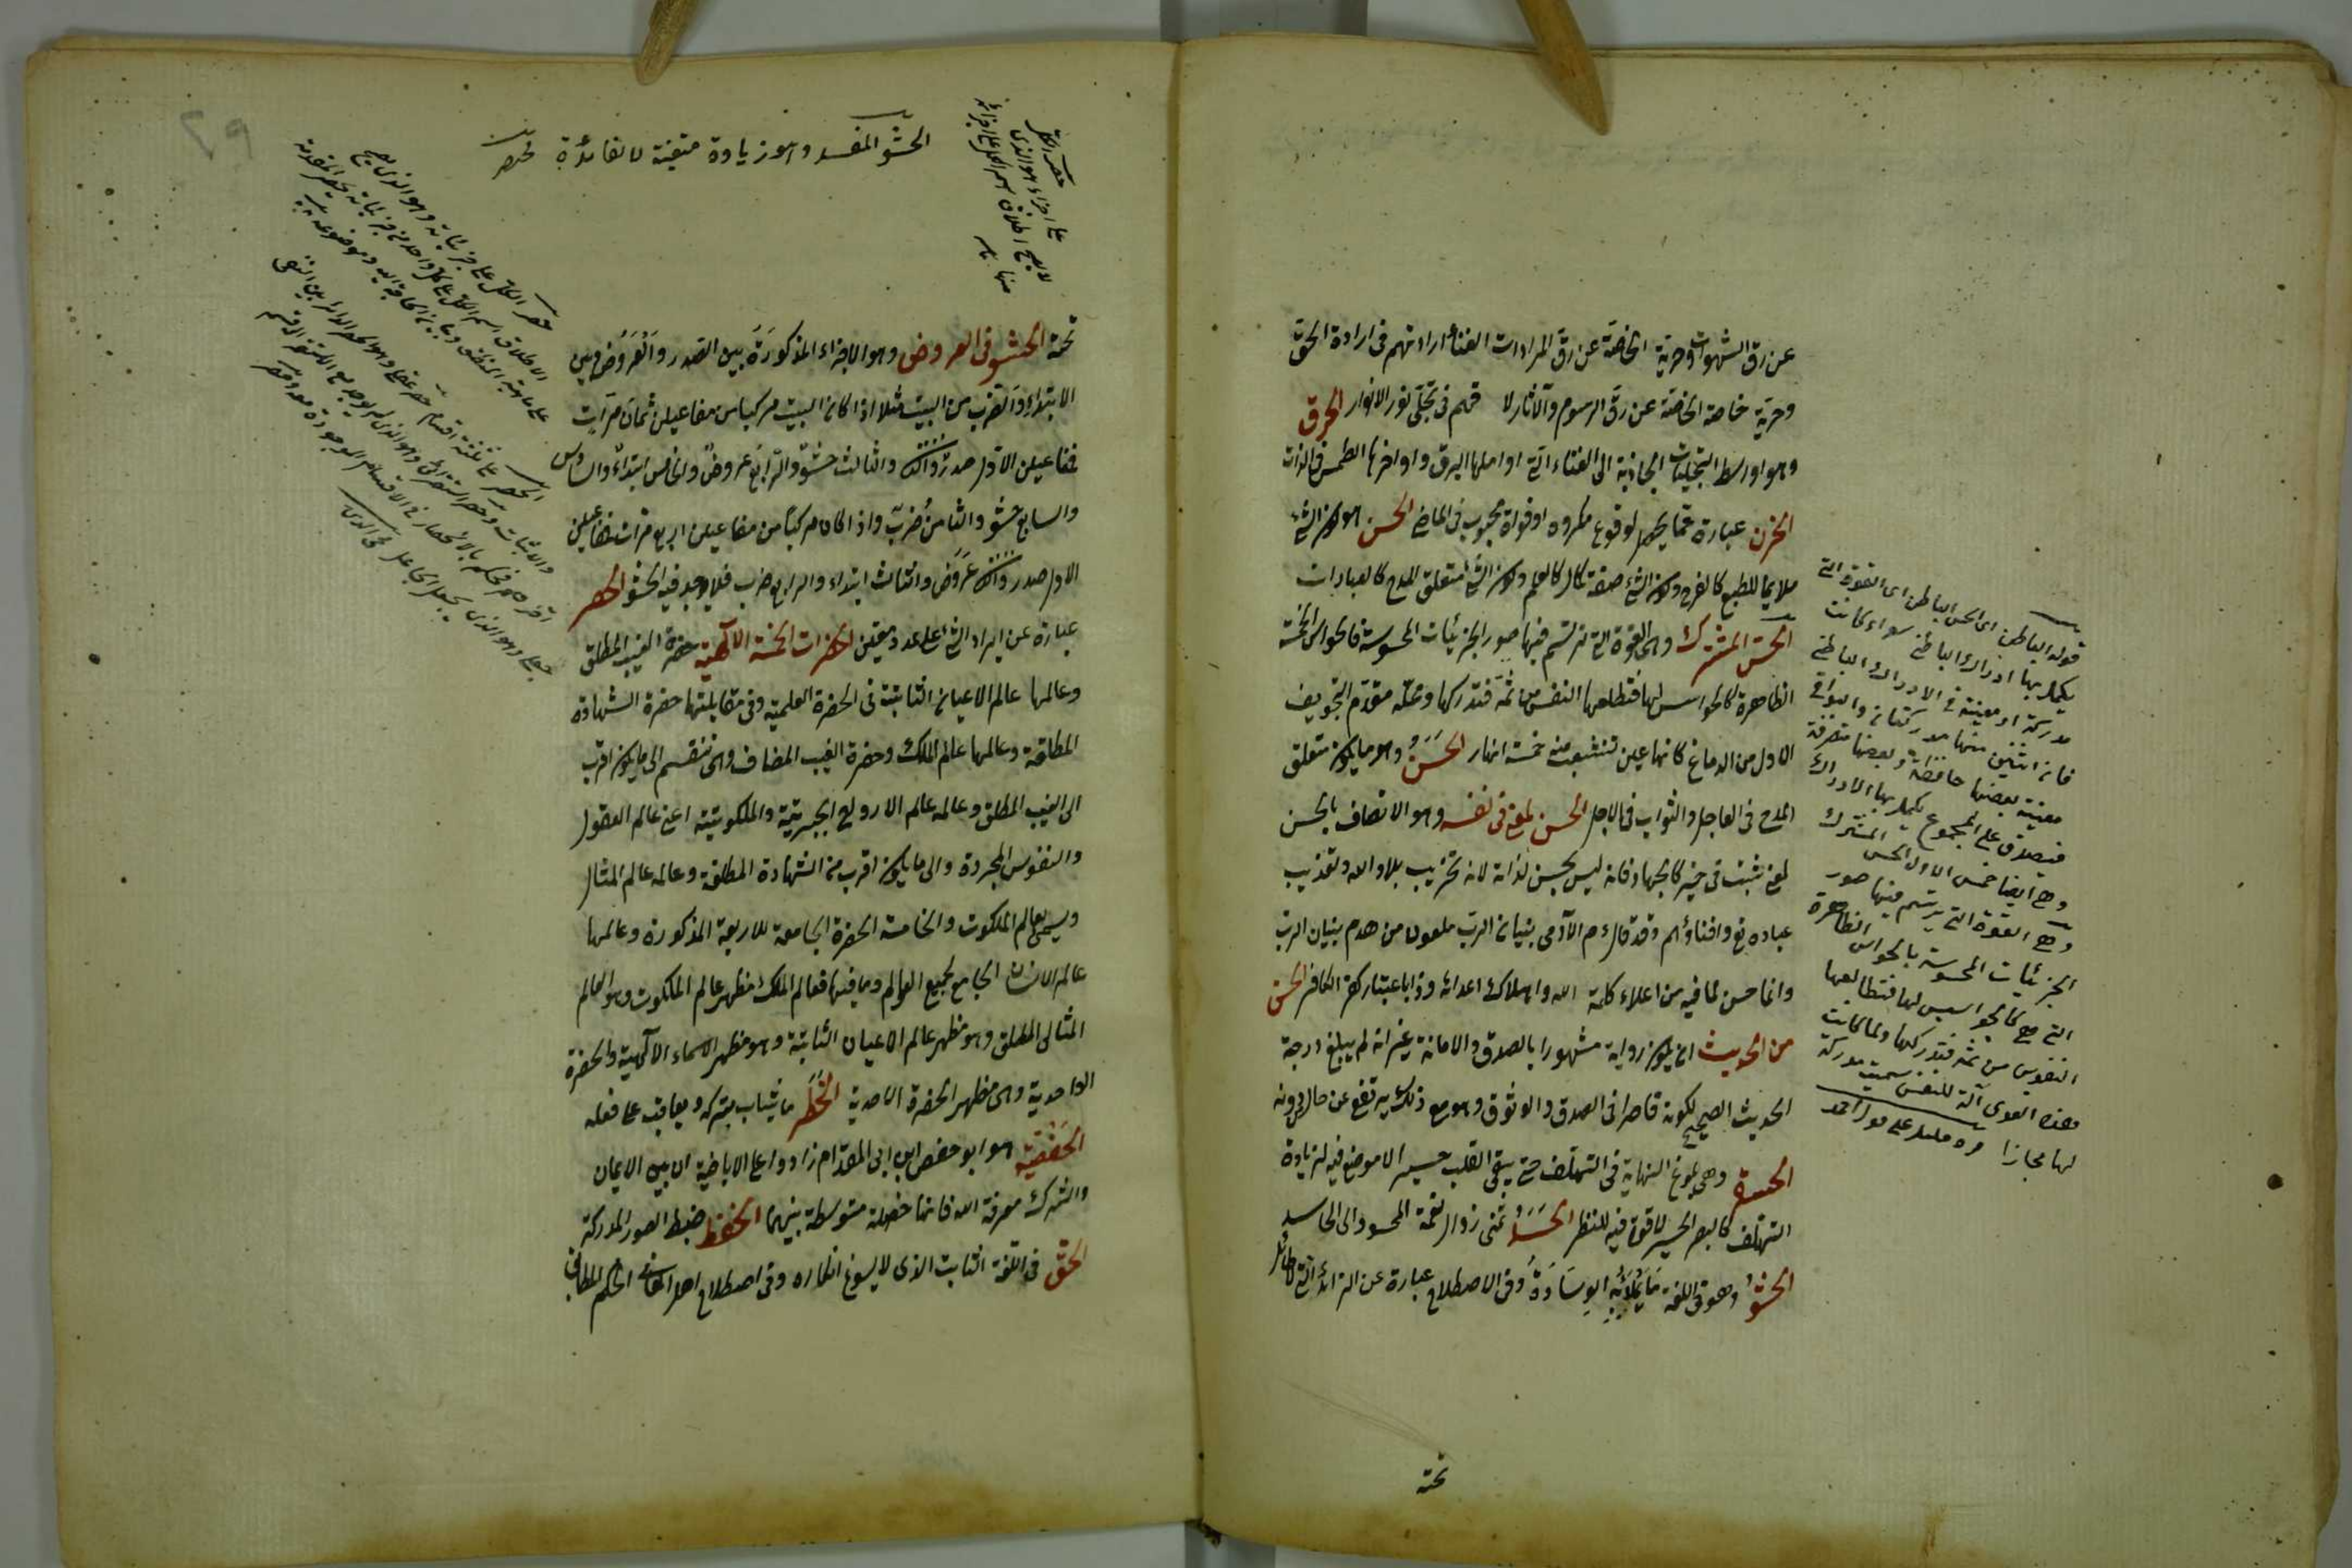 عن رق الشهوات وحرية الخاصة عن رق المرادات لفناء ارادتهم فى ارادة الحق
وحرية خاصة الخاصة عن رق الرسوم والآثار لا فهم فى تجلى نور الانوار الحرق
وهو اواسط التجليات الجاذبة الى الفناء التى اوائلها البرق واواخرها الطمس فى الذات
الحزن عبارة عما يحصل لوقوع مكروه او فوات محبوب فى الماضى الحسن هو كون الشئ
ملايما للطبع كالفرح وكون الشئ صفة كمال كالعلم وكون الشئ متعلق المدح كالعبادات
الحس المشترك وهى القوة التى ترتسم فيها صور الجزئيات المحسوسة فالحواس الخمسة
الظاهرة كالجواسيس لها فتطلعها النفس من ثمه فتدركها ومحله مقدم التجويف
الاول من الدماغ كانها عين تنشعب منه خمسة انهار الحسن وهو ما يكون متعلق
المدح فى العاجل والثواب فى الآجل الحسن لمعنى فى نفسه وهو الاتصاف بالحسن
لمعنى ثبت فى غيره كالجهاد فانه ليس بحسن لذاته لانه تخريب بلاد الله وتعذيب
عباده تع وافناؤهم وقد قال ءم الآدمى بنيان الرب ملعون من هدم بنيان الرب
وانما حسن لما فيه من اعلاء كلمة الله واهلاك اعدائه وذا باعتبار كفر الكافر الحسن
من الحديث ان يكون رواية مشهورا بالصدق والامانة غير انه لم يبلغ درجة
الحديث الصحيح لكونه قاصرا فى الصدق والوثوق وهو مع ذلك يرتفع عن حال من دونه
الحسرة وهى بلوغ النهاية فى التهلف حتى يبقى القلب حسيرا لا موضع فيه لزيادة
التهلف كالبصر الحسير لا قوة فيه للنظر الحسد تمنى زوال نعمة المحسود الى الحاسد
الحشو وهو فى اللغة ما يملأ به الوسادة وفى الاصطلاح عبارة عن الزائد الذى لا طائل
تحته
قوله الباطن اى الحس الباطن اى القوة التى
يكمل بها ادراك الباطن سواء كانت
مدركة او معينة فى الادراك الباطنى
فان اثنين منها مدركتان والبواقى
معينة بعضها حافظة وبعضها متصرفة
فيصدق على المجموع يكمل بها الادراك
وهى ايضا خمس الاول الحس المشترك
وهى القوة التى يرتسم فيها صور
الجزئيات المحسوسة بالحواس الظاهرة
التى هى كالجواسيس لها فتطالعها
النفوس من ثمه فتدركها ولما كانت
هذه القوى آلة للنفس سميت مدركة
لها مجازا
الحشو المفسد وهو زيادة متعينة لا لفائدة
حصر الكل
على اجزاء هو الذى
لا يصح اطلاق اسم الكل على اجزائه
منها
حصر الكلى على جزئياته وهو الذى يصح
الاطلاق اسم الكلى على كل واحد من جزئياته كحصر المقدمة
على ماهية المنطق وبيان الحاجة اليه وموضوعه
الحصر على ثلثة اقسام حصر عقلى وهو الحصر الدائر بين النفى
والاثبات وحصر استقرائى وهو الذى لم يوجد مع
جعلى وهو الذى يجعل الجاعل
تحته الحشو فى العروض وهو الاجزاء المذكورة بين الصدر والعروض وبين
الابتداء والضرب من البيت مثلا اذا كان البيت مركبا من مفاعيلن ثمان مرات
فمفاعيلن الاول صدر والثانى والثالث حشو والرابع عروض والخامس ابتداء والسادس
والسابع حشو والثامن ضرب واذا كان مركبا من مفاعيلن اربع مرات فمفاعيلن
الاول صدر والثانى عروض والثالث ابتداء والرابع ضرب فلا يوجد فيه الحشو الحصر
عبارة عن ايراد الشئ على عدد معين الحضرات الخمسة الالهية حضرة الغيب المطلق
وعالمها عالم الاعيان الثابتة فى الحضرة العلمية وفى مقابلتها حضرة الشهادة
المطلقة وعالمها عالم الملك وحضرة الغيب المضاف وهى تنقسم الى ما يكون اقرب
الى الغيب المطلق وعالمه عالم الارواح الجبروتية والملكوتية اعنى عالم العقول
والنفوس المجردة والى ما يكون اقرب من الشهادة المطلقة وعالمه عالم المثال
ويسمى بعالم الملكوت والخامسة الحضرة الجامعة للاربعة المذكورة وعالمها
عالم الانسان الجامع لجميع العوالم وما فيها فعالم الملك مظهر عالم الملكوت وهو العالم
المثالى المطلق وهو مظهر عالم الاعيان الثابتة وهو مظهر الاسماء الالهية والحضرة
الواحدية وهى مظهر الحضرة الاحدية الحظر ما يثاب بتركه ويعاقب على فعله
الحفصية هو ابو حفص ابن ابى المقدام زادوا على الاباضية ان بين الايمان
والشرك معرفة الله فانها خصلة متوسطة بينهما الحفظ ضبط الصور المدركة
الحق فى اللغة الثابت الذى لا يسوغ انكاره وفى اصطلاح اهل المعانى الحكم المطابق